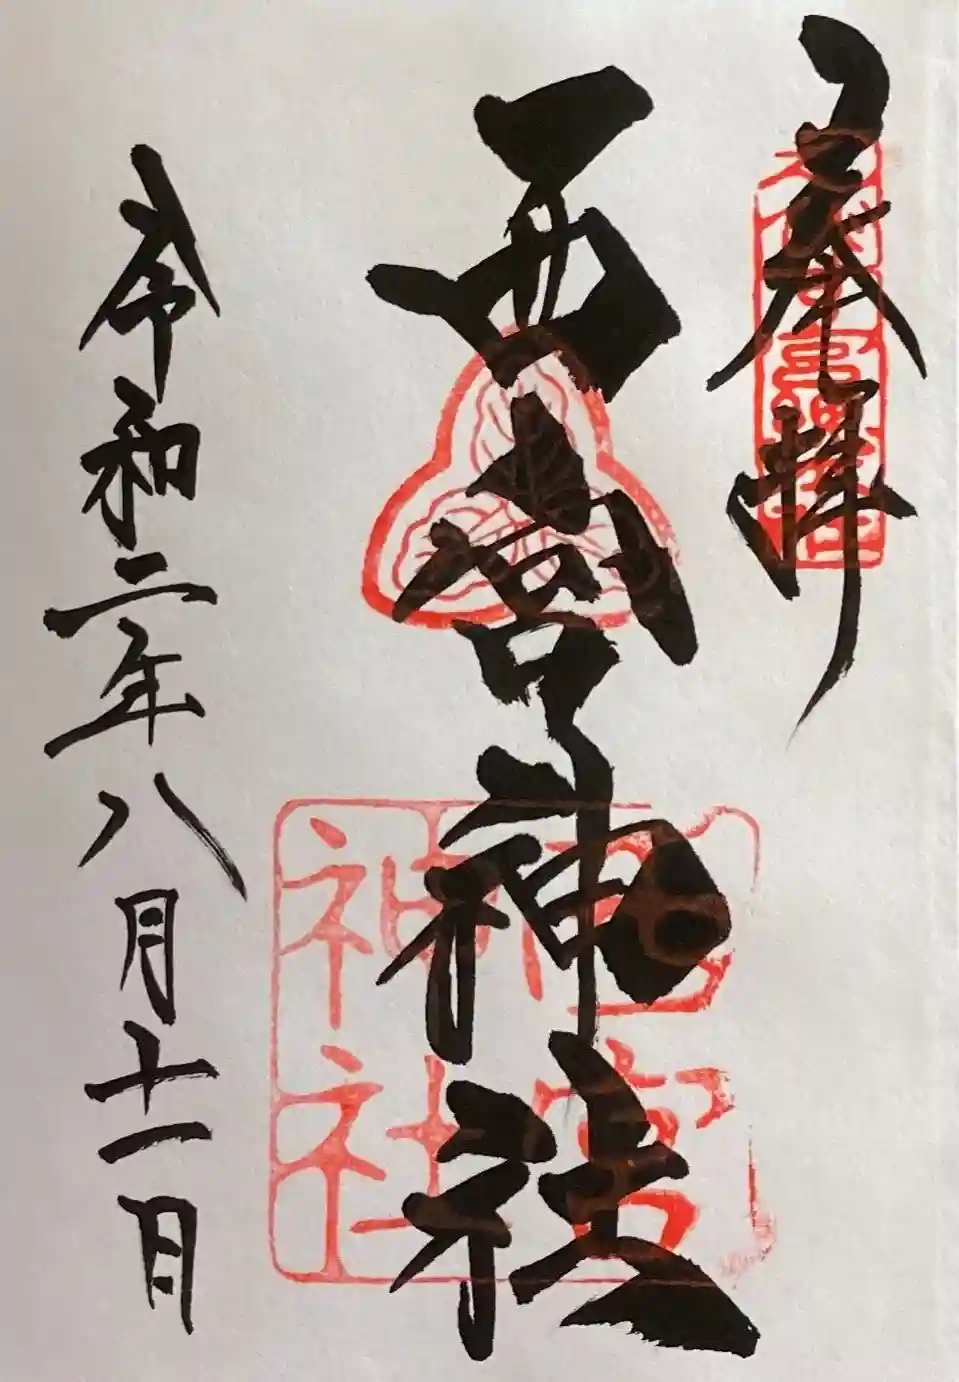 奉拝
西宮神社
西宮神社
令和二年八月十一日